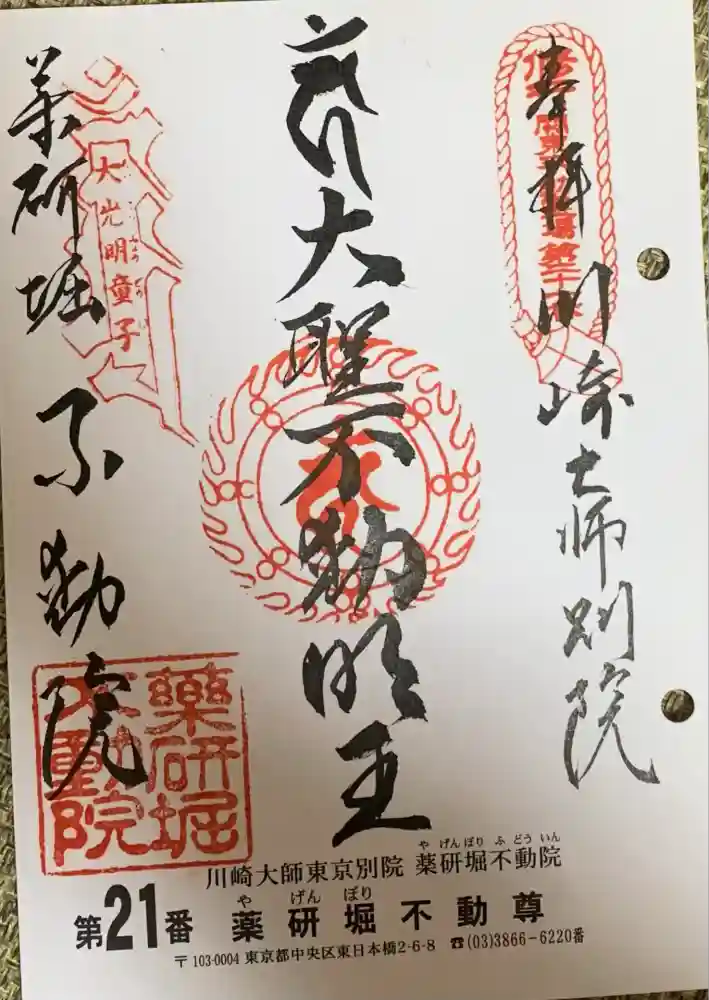 奉拝 川崎大師別院
大聖不動明王
大光明童子
薬研堀 不動院
薬研堀
不動院
川崎大師東京別院 薬研堀不動院
や げんぼり ふ どう いん
第21番 薬研堀不動尊
や げん ぼり
〒103-0004 東京都中央区東日本橋2-6-8 ☎(03)3866−6220番